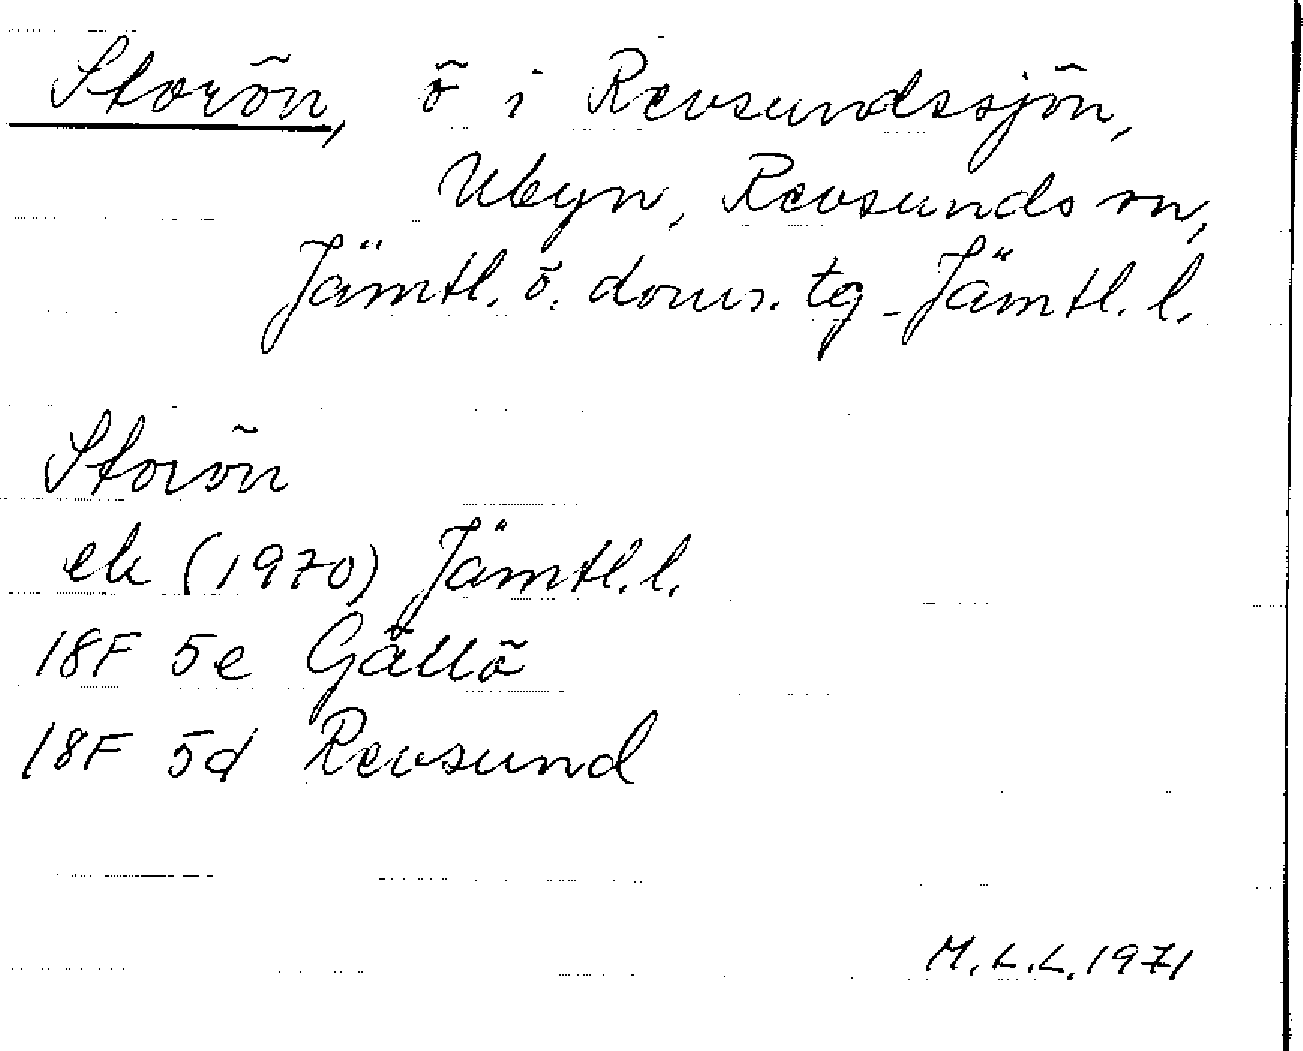 Storön, ö i Revsundssjön,
Ubyn, Revsunds sn,
Jämtl. ö. doms. tg Jämtl. l.
Storön
ek (1970) Jämtl. l.
18F 5e Gällö
18F 5d Revsund
M.L.L. 1971